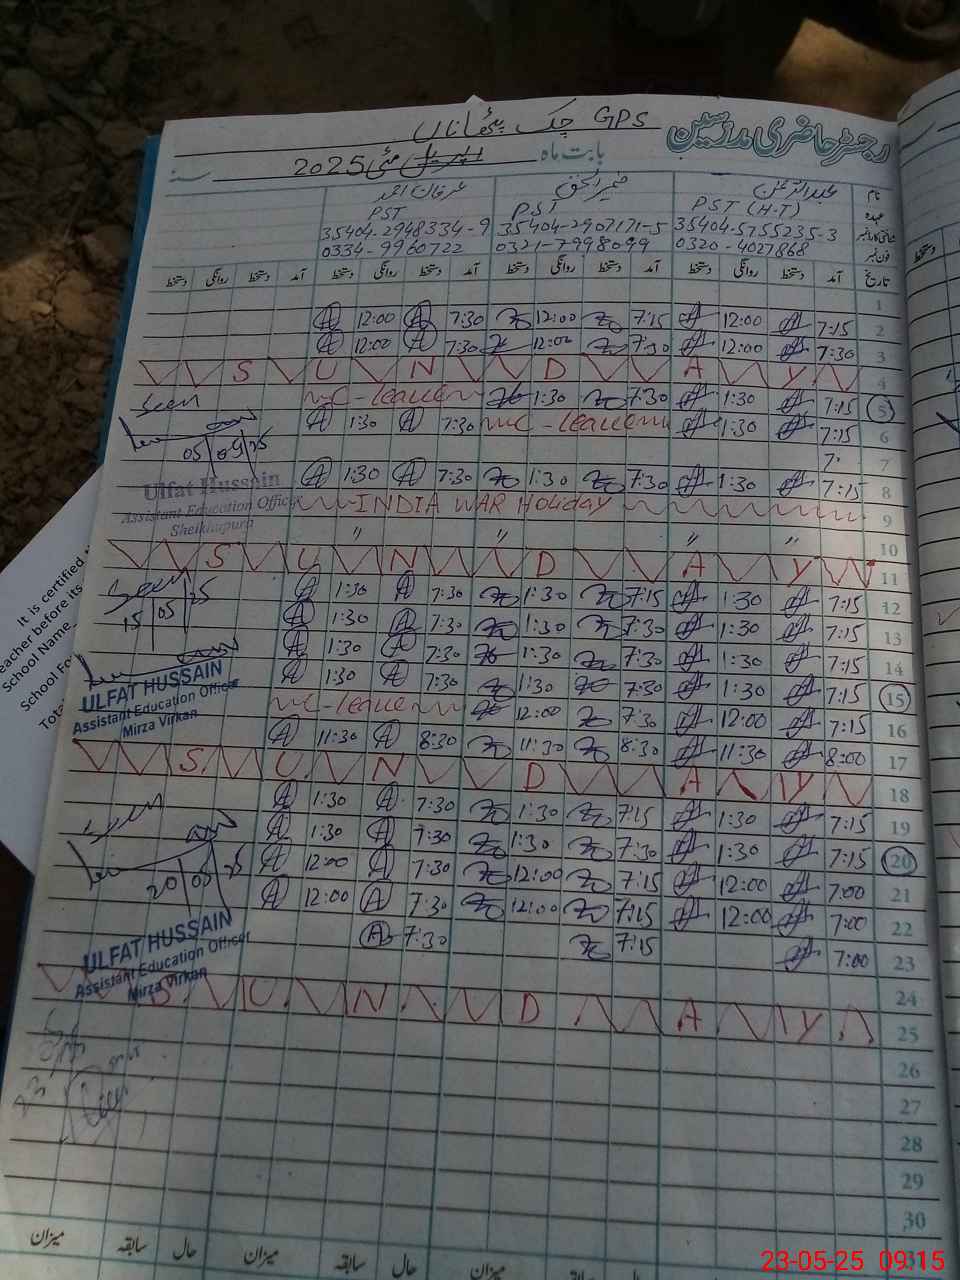 رجسٹر حاضری مدرسین GPS چک پٹھاناں
بابت ماہ مئی 2025 سنہ
نام
عہدہ PST (H-T) PST PST
شناختی کارڈ نمبر 35404-5755235-3 35404-2907171-5 35404-2948334-9
فون نمبر 0320-4027868 0321-7998099 0334-9960722
تاریخ آمد دستخط روانگی دستخط آمد دستخط روانگی دستخط آمد دستخط روانگی دستخط آمد دستخط روانگی دستخط
1
12:00 7:30 12:00 7:15 12:00 7:15 2
12:00 7:30 12:00 7:30 12:00 7:30 3
S U N D A Y 4
Seen leave 1:30 7:30 1:30 7:15 5
1:30 7:30 leave 1:30 7:15 6
05 25 7
Ulfat Hussain 1:30 7:30 1:30 7:30 1:30 7:15 8
Assistant Education Officer INDIA WAR Holiday 9
Sheikhupura
" " " " 10
S U N D A Y 11
1:30 7:30 1:30 7:15 1:30 7:15 12
15 05 25 1:30 7:30 1:30 7:30 1:30 7:15 13
1:30 7:30 1:30 7:30 1:30 7:15 14
ULFAT HUSSAIN 1:30 7:30 1:30 7:30 1:30 7:15 15
Assistant Education Officer leave 12:00 7:30 12:00 7:15 16
Mirza Virkan 11:30 8:30 11:30 8:30 11:30 8:00 17
S U N D A Y 18
1:30 7:30 1:30 7:15 1:30 7:15 19
1:30 7:30 1:30 7:30 1:30 7:15 20
12:00 7:30 12:00 7:15 12:00 7:00 21
20 05 25 12:00 7:30 12:00 7:15 12:00 7:00 22
ULFAT HUSSAIN 7:30 7:15 7:00 23
Assistant Education Officer
Mirza Virkan 24
S U N D A Y 25
26
27
28
29
30
میزان سابقہ حال میزان سابقہ حال میزان سابقہ حال
It is certified
eacher before its
School Name
School
23-05-25 09:15